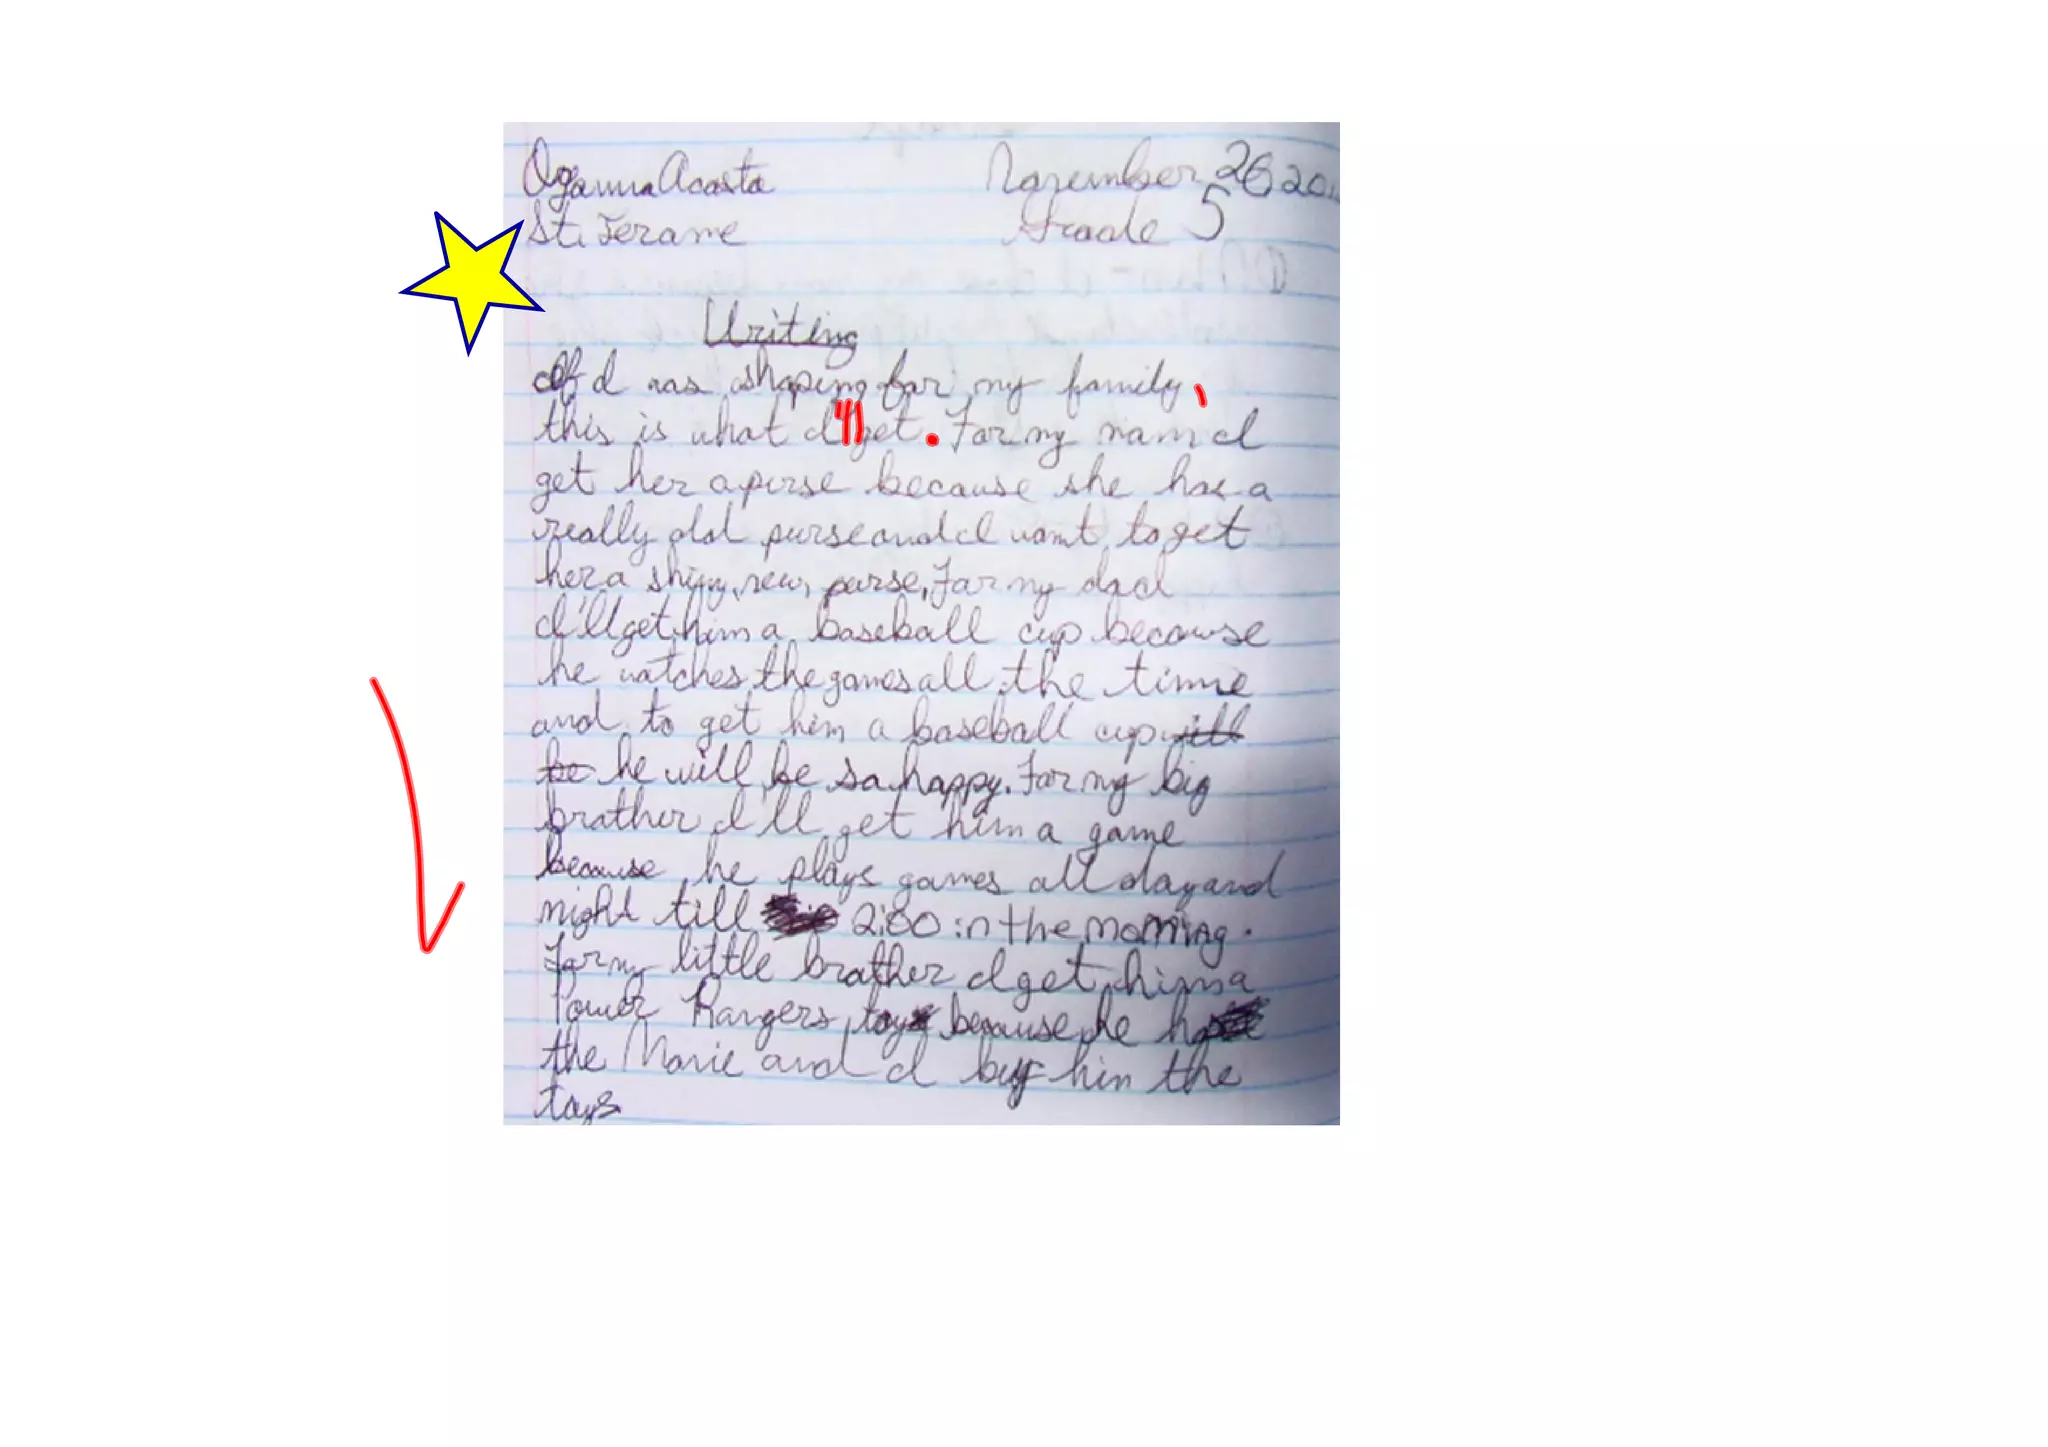 Oganna Acosta November 26 20
St. Jerome Grade 5
Writing
If I was shoping for my family,
this is what I'll get. For my mom I
get her a purse because she has a
really old purse and I want to get
her a shiny, new, purse, For my dad
I'll get him a baseball cup because
he watches the games all the time
and to get him a baseball cup will
be he will be so happy. For my big
brother I'll get him a game
because he plays games all day and
night till 2:00 in the morning.
For my little brother I get him a
Power Rangers toy because he has
the Movie and I buy him the
toys